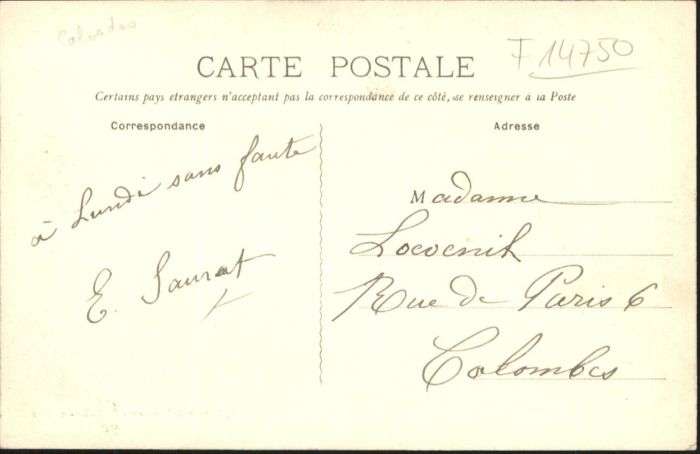 Calvados
F 14750
CARTE POSTALE
Certains pays etrangers n'acceptant pas la correspondance de ce côté, se renseigner à la Poste
Correspondance
à Lundi sans faute
E. Saurat
Adresse
Madame
Locvenih
Rue de Paris 6
Colombes